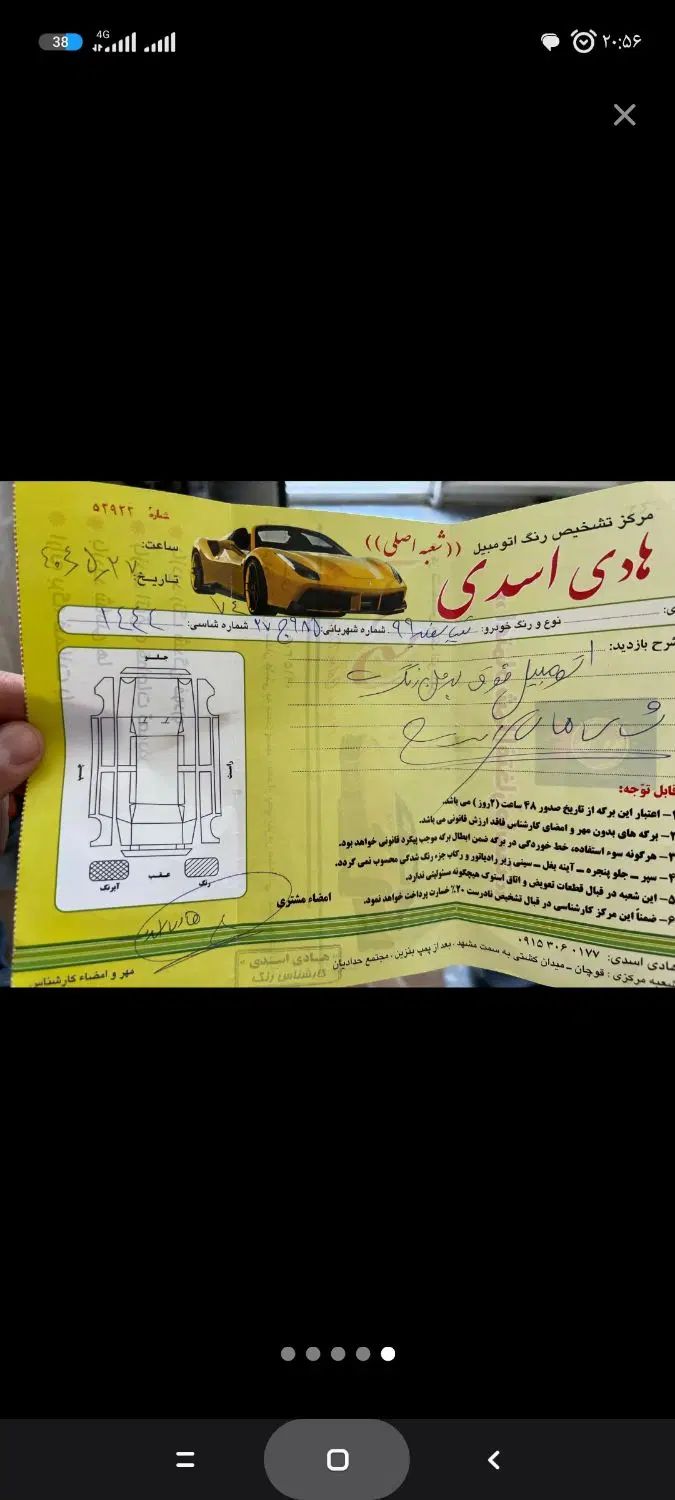 38 4G ۲۰:۵۶
مرکز تشخیص رنگ اتومبیل ((شعبه اصلی))
هادی اسدی
شماره ۵۲۹۲۲
ساعت:
تاریخ:
نوع و رنگ خودرو: شماره شهربانی: ۷۴ ۹۸۵ج۲۷ شماره شاسی: ۱۴۴۴
شرح بازدید: اتومبیل فوق بدون رنگ
جلو
چپ
راست
عقب
رنگ
آبرنگ
قابل توجه:
۱- اعتبار این برگه از تاریخ صدور ۴۸ ساعت (۲روز) می باشد.
۲- برگه های بدون مهر و امضای کارشناس فاقد ارزش قانونی می باشد.
۳- هرگونه سوء استفاده، خط خوردگی در برگه ضمن ابطال برگه موجب پیگرد قانونی خواهد بود.
۴- سپر - جلو پنجره - آینه بغل - سینی زیر رادیاتور و رکاب جزء رنگ شدگی محسوب نمی گردد.
۵- این شعبه در قبال قطعات تعویض و اتاق استوک هیچگونه مسئولیتی ندارد.
۶- ضمناً این مرکز کارشناسی در قبال تشخیص نادرست ۲۰٪ خسارت پرداخت خواهد نمود.
امضاء مشتری
مهر و امضاء کارشناس
هادی اسدی
کارشناس رنگ
هادی اسدی: ۰۹۱۵ ۳۰۶ ۰۱۷۷
شعبه مرکزی: قوچان - میدان کشتی به سمت مشهد، بعد از پمپ بنزین، مجتمع حدادیان